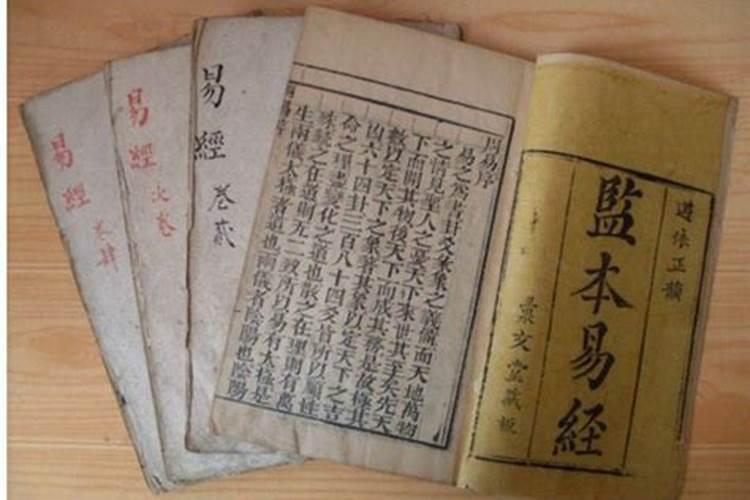 遵依正韻
監本易経
彙文堂藏板
周易序
易之為書卦爻彖象之義備而天地萬物
之情見聖人之憂天下來世其至矣先天
下而開其物後天下而成其務是故極其
數以定天下之象著其象以定天下之吉
凶六十四卦三百八十四爻皆所以順性
命之理盡變化之道也散之在理則有萬
殊統之在道則无二致所以易有太極是
生兩儀太極者道也兩儀者陰陽也陰陽
易經 卷貳
易經 次卷
易經 卷肆